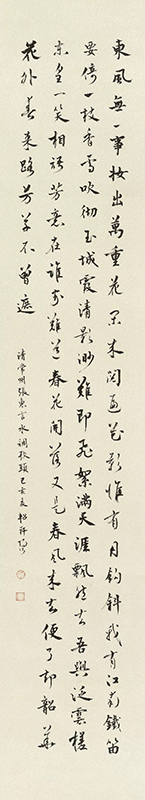 東風無一事妝出萬重花閒來閱遍花影惟有月鉤斜我有江南鐵笛
要倚一枝香雪吹徹玉城霞清影渺難即飛絮滿天涯飄然去吾與泛雲槎
東皇一笑相語芳意在誰家難道春花開落又是春風來去便了卻韶華
花外春來路芳草不曾遮
清常州張惠言水調歌頭己亥夏